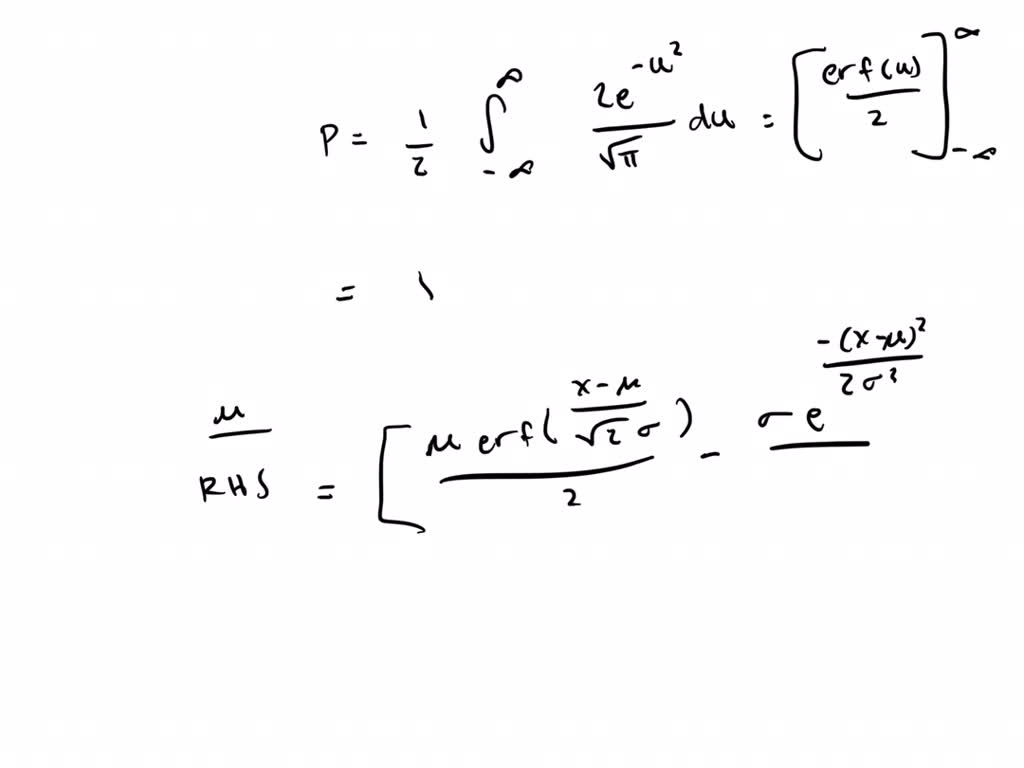 P = 1/2 ∫_{-∞}^{∞} 2e^{-u²}/√π du = [erf(u)/2]_{-∞}^{∞}
= 1
μ
RHS = [μ erf((x-μ)/(√2 σ))/2 - σe^{-(x-μ)²/2σ²}